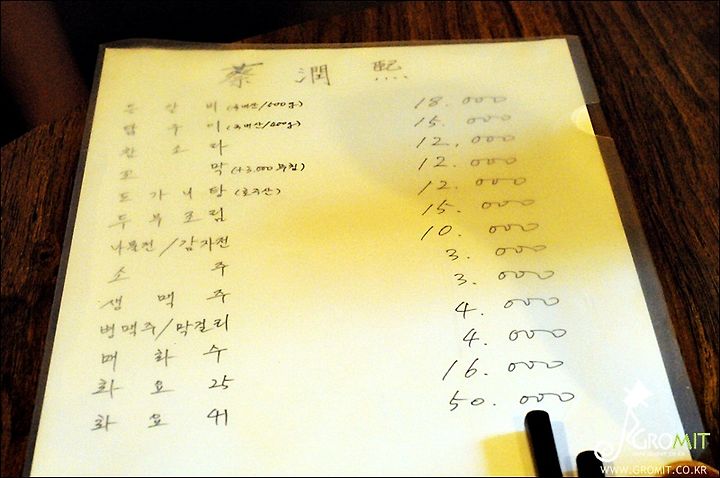 蔡 潤 熙
돈 알 비 (국내산/600g) 18.000
탐 구 이 (국내산/200g) 15.000
한 소 라 12.000
꼬 막 (+3.000 무침) 12.000
도 가 니 탕 (호주산) 12.000
두 부 조 림 15.000
나물전/감자전 10.000
소 주 3.000
생 맥 주 3.000
병맥주/막걸리 4.000
매 화 수 4.000
화 요 25 16.000
화 요 41 50.000
GROMIT
WWW.GROMIT.CO.KR